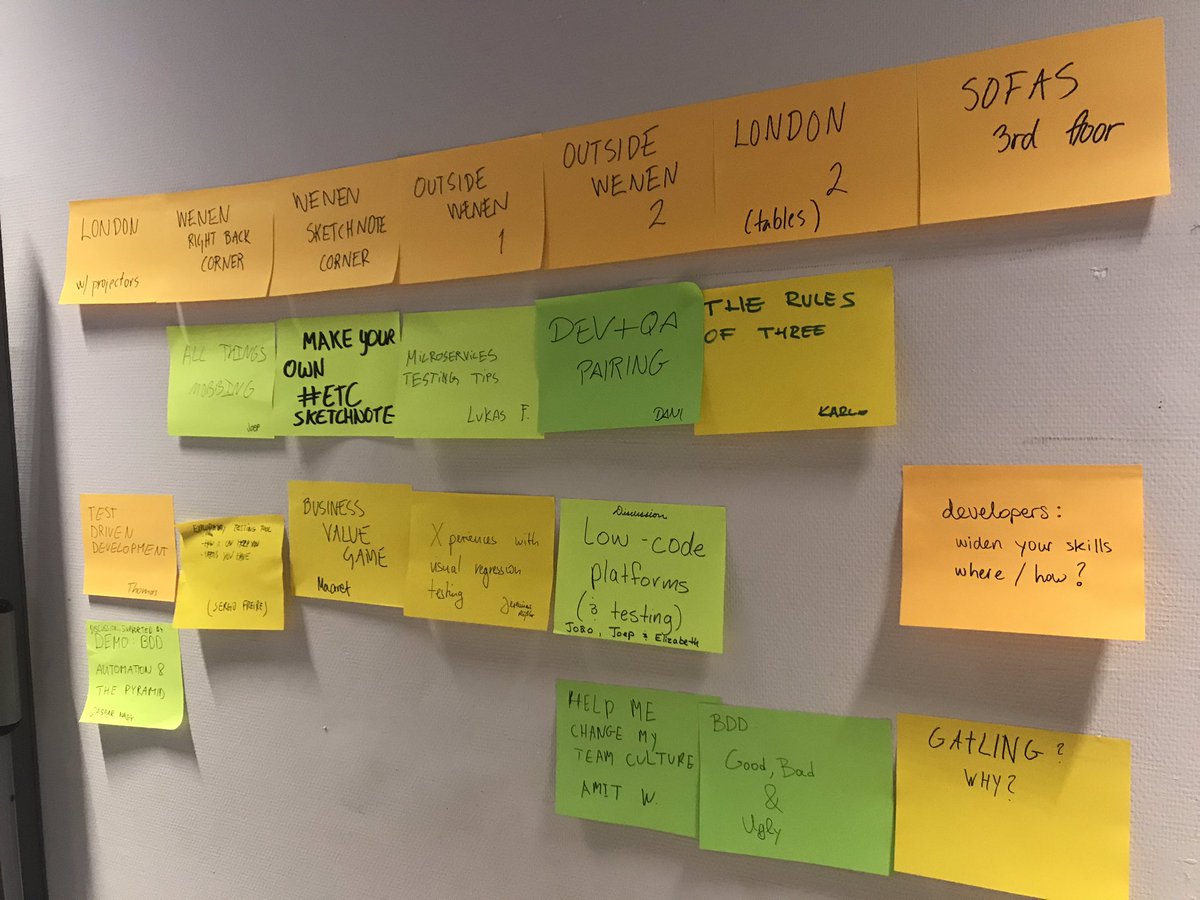 LONDON
w/ projectors
WENEN
RIGHT BACK
CORNER
WENEN
SKETCHNOTE
CORNER
OUTSIDE
WENEN
1
OUTSIDE
WENEN
2
LONDON
2
(tables)
SOFAS
3rd floor
ALL THINGS
MOBBING
JOEP
MAKE YOUR
OWN
#ETC
SKETCHNOTE
MICROSERVICES
TESTING TIPS
LUKAS F.
DEV+QA
PAIRING
DANI
THE RULES
OF THREE
KARLO
TEST
DRIVEN
DEVELOPMENT
Thomas
TESTING
(SERGIO FREIRE)
BUSINESS
VALUE
GAME
Maaret
Xperiences with
visual regression
testing
Discussion
Low-code
platforms
(& testing)
JOBO, Joep & Elizabeth
developers:
widen your skills
where / how?
DISCUSSION, SUPPORTED BY
DEMO: BDD
AUTOMATION &
THE PYRAMID
HELP ME
CHANGE MY
TEAM CULTURE
AMIT W.
BDD
Good, Bad
&
Ugly
GATLING?
WHY?